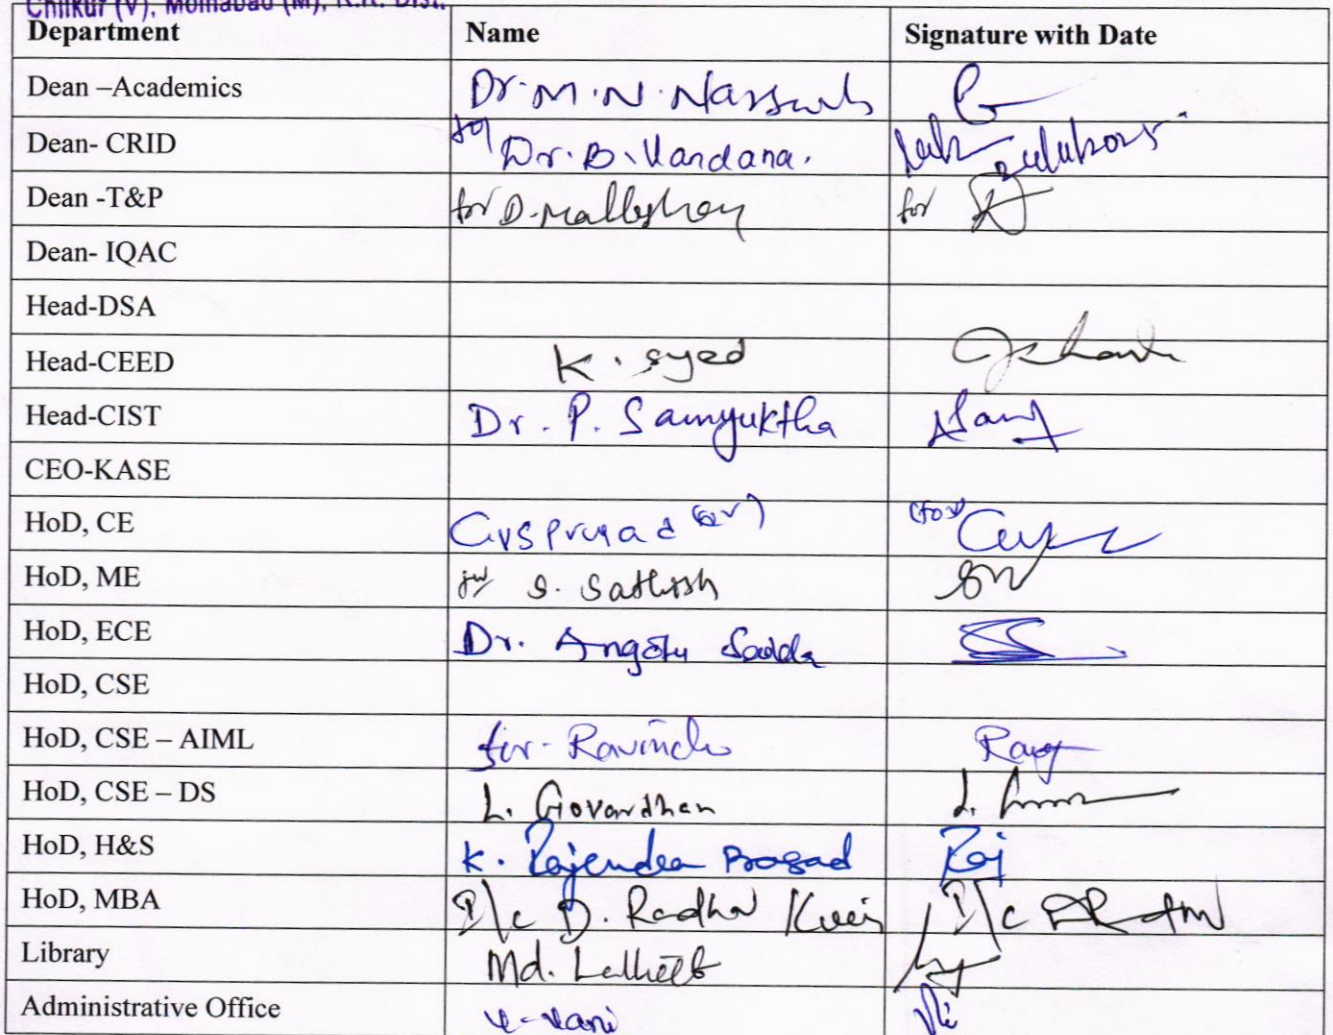 Chilkur (V), Moinabad (M), R.R. Dist.
Department Name Signature with Date
Dean –Academics Dr. M. N.
Dean- CRID for Dr. B. Vandana.
Dean -T&P for D. for
Dean- IQAC
Head-DSA
Head-CEED K. Syed
Head-CIST Dr. P. Samyuktha
CEO-KASE
HoD, CE GVS Prasad (for) (for)
HoD, ME for S. Sathish
HoD, ECE Dr. Angotu
HoD, CSE
HoD, CSE – AIML for - Ravinder
HoD, CSE – DS L. Govardhan
HoD, H&S K. Rajendra Prasad Raj
HoD, MBA I/c D. Radha I/c
Library Md.
Administrative Office V. Vani